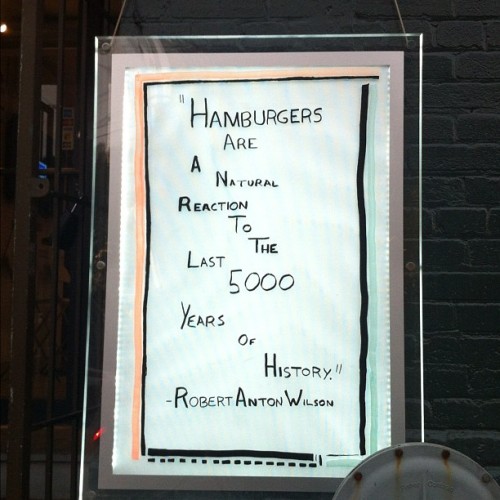 "HAMBURGERS
ARE
A
NATURAL
REACTION
TO
THE
LAST
5000
YEARS
OF
HISTORY."
-ROBERT ANTON WILSON